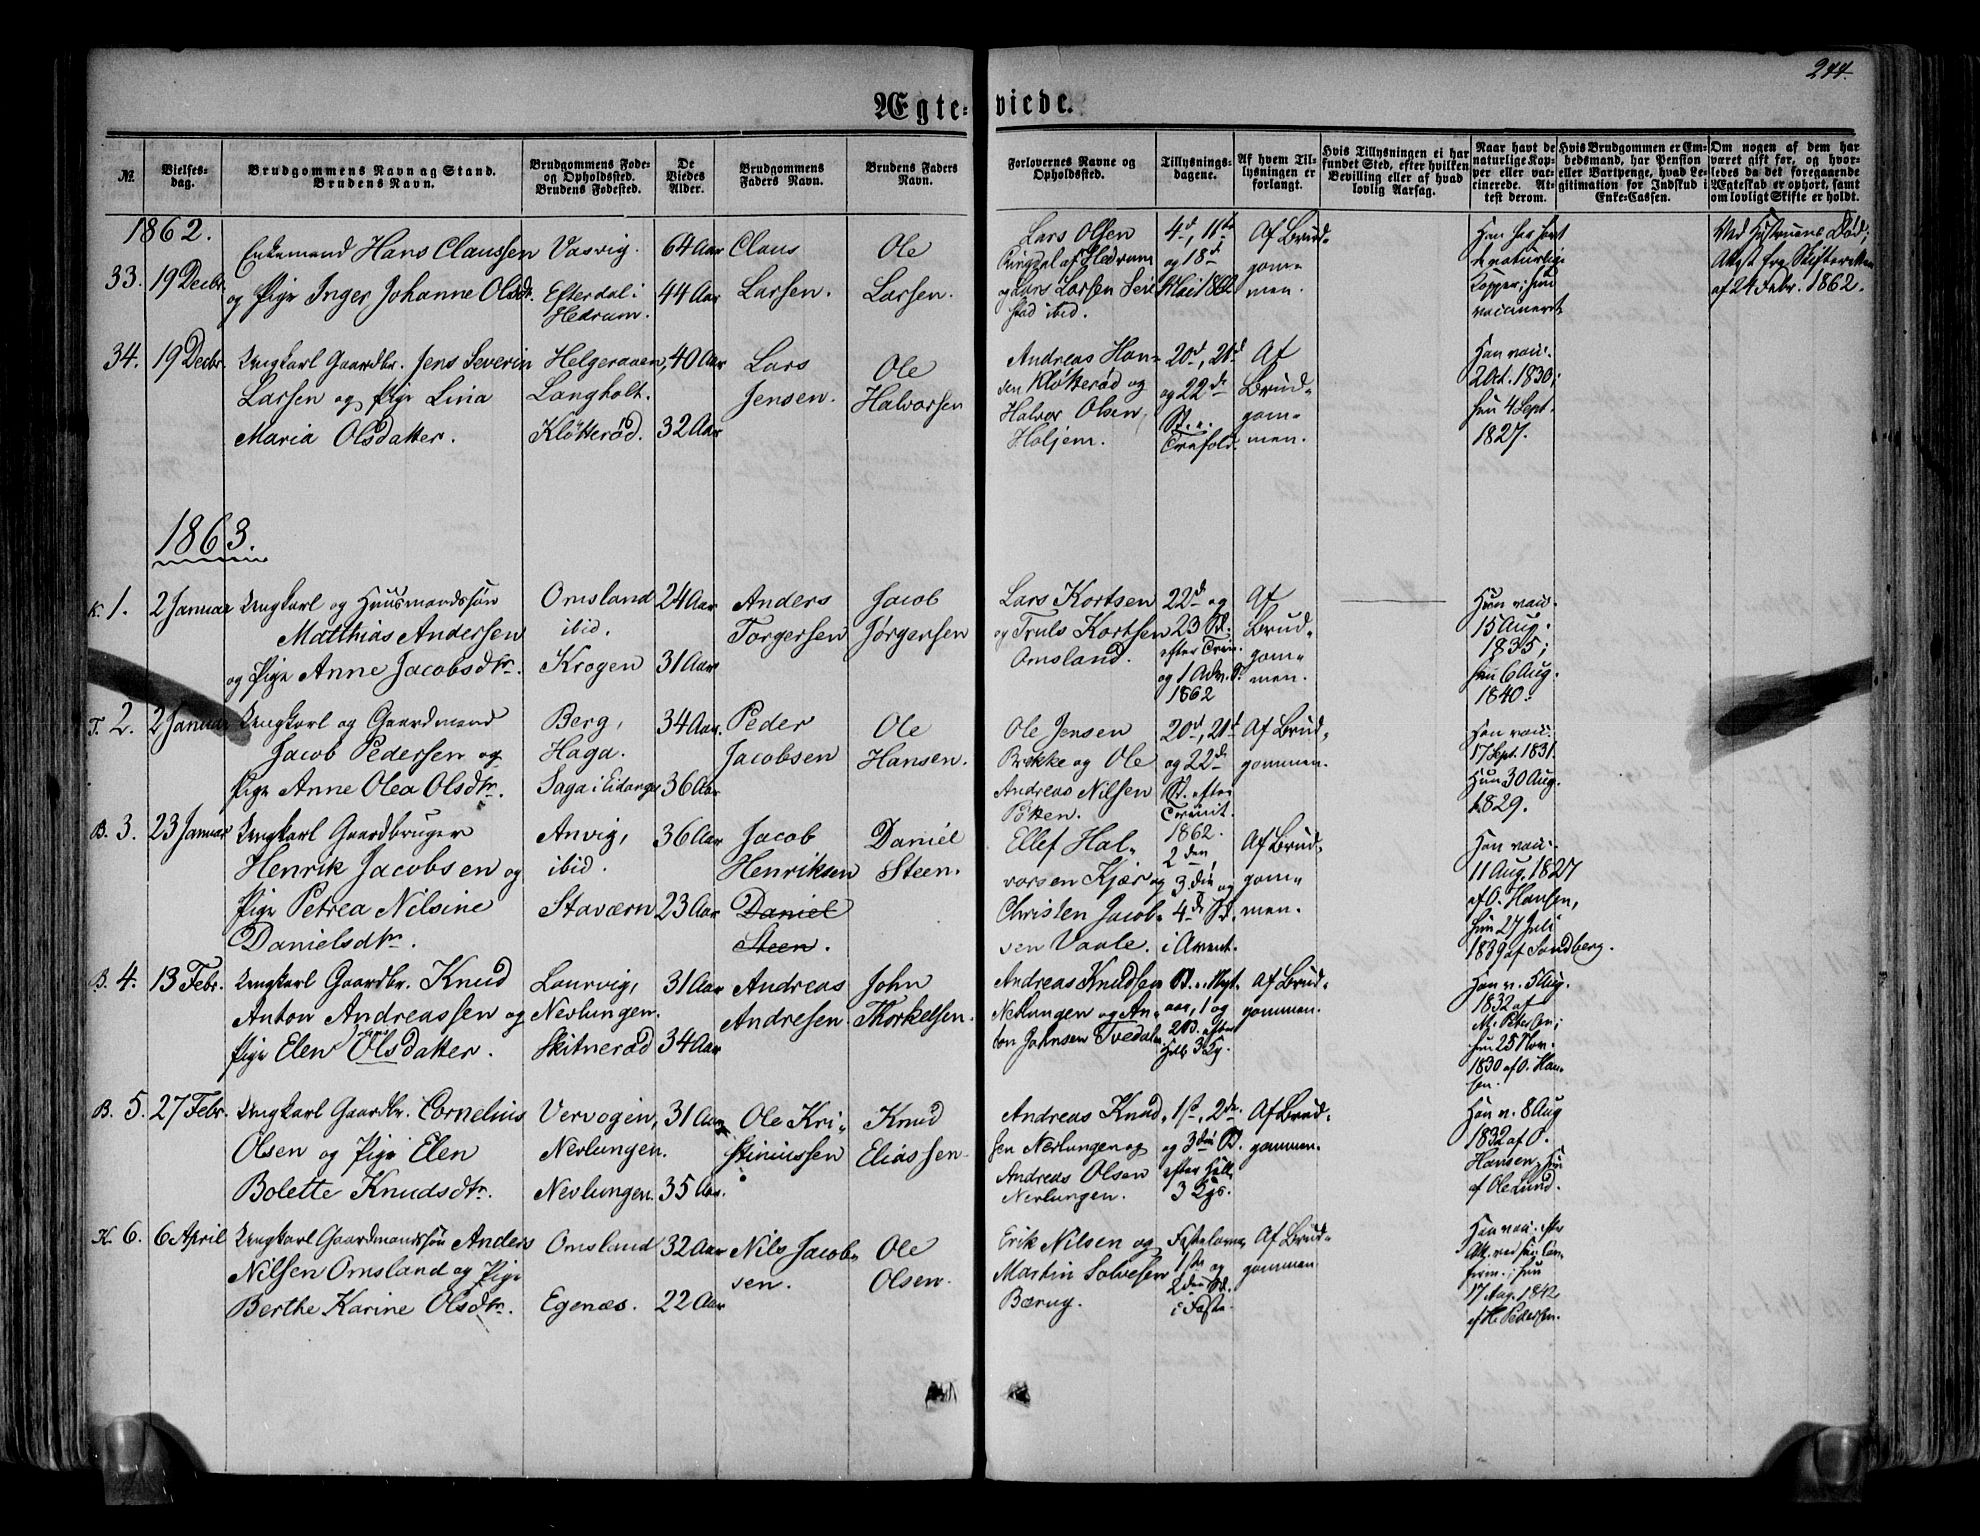 244.
Ægte=viede.
No.
Vielses=
dag.
Brudgommens Navn og Stand.
Brudens Navn.
Brudgommens Føde=
og Opholdssted.
Brudens Fødested.
De
Viedes
Alder.
Brudgommens
Faders Navn.
Brudens Faders
Navn.
Forlovernes Navne og
Opholdssted.
Tillysnings=
dagene.
Af hvem Til=
lysningen er
forlangt.
Hvis Tillysningen ei har
fundet Sted, efter hvilken
Bevilling eller af hvad
lovlig Aarsag.
Naar havt de
naturlige Kop=
per eller vac=
cinerede. At=
test derom.
Hvis Brudgommen er Em=
bedsmand, har Pension
eller Vartpenge, hvad Le=
gitimation for Indskud i
Enke=Cassen.
Om nogen af dem har
været gift før, og hvor=
ledes da det foregaaende
Ægteskab er ophørt, samt
om lovligt Skifte er holdt.
1862.
33. 19 Decbr.
Enkemand Hans Claussen
og Pige Inger Johanne Olsdtr.
Vasvig.
Efterdal i
Hedrum.
64 Aar
44 Aar
Claus
Larsen.
Ole
Larsen.
Lars Olsen
af Hedrum
og Lars Larsen
stad ibid.
4d, 11te
og 18d
Mai 1862
Af Brud=
gom=
men.
Han har havt
d naturlige
Kopper; hun
vaccineret
Ved Hustruens Død;
Attest fra Skifteretten
af 24 Febr. 1862.
34. 19 Decbr.
Ungkarl Gaardbr. Jens Severin
Larsen og Pige Lina
Maria Olsdatter.
Helgeraaen,
Langholt.
Kløtterød.
40 Aar
32 Aar
Lars
Jensen.
Ole
Halvorsen
Andreas Han=
sen Kløtterød og
Halvor Olsen
Holjem.
20d, 21d
og 22de
S. e.
Trefold.
Af
Brud=
gom=
men.
Han vac.
2 Oct. 1830;
hun 4 Sept.
1827.
1863.
K. 1. 2 Januar
Ungkarl og Huusmandssøn
Matthias Andersen
og Pige Anne Jacobsdtr.
Omsland
ibid.
Krogen
24 Aar
31 Aar
Anders
Torgersen
Jacob
Jørgensen
Lars Kortsen
og Truls Kortsen
Omsland.
22d og
23 Sd.
efter Trin.
og 1 Adv. S.
1862
Af
Brud=
gom=
men.
Han vac.
15 Aug.
1835;
hun 6 Aug.
1840.
T. 2. 2 Januar
Ungkarl og Gaardmand
Jacob Pedersen og
Pige Anne Olea Olsdtr.
Berg,
Haga.
Saga i Eidanger
34 Aar.
36 Aar
Peder
Jacobsen
Ole
Hansen.
Ole Jensen
Brekke og Ole
Andreas Nilsen
Potten.
20d, 21d
og 22de
S. efter
Trinit.
1862.
Af Brud=
gommen.
Han vac.
17 Sept. 1831.
Hun 30 Aug.
1829.
B. 3. 23 Januar
Ungkarl Gaardbruger
Henrik Jacobsen og
Pige Petrea Nilsine
Danielsdtr.
Anvig,
ibid.
Staværn
36 Aar
23 Aar
Jacob
Henriksen
Daniel
Steen.
Daniel
Steen.
Ellef Hal=
vorsen Kjær og
Christen Jacob=
sen Vaale.
2den,
3die og
4de Sd.
i Advent.
Af Brud=
gom=
men.
Han vac.
11 Aug. 1827
af O. Hansen,
hun 27 Juli
1839 af Sandberg.
B. 4. 13 Febr.
Ungkarl Gaardbr. Knud
Anton Andreassen og
Pige Elen Olsdatter.
Laurvig,
Nevlungen.
Skitnerød
31 Aar
34 Aar
Andreas
Andresen.
John
Thorkelsen.
Andreas Knudsen
Nevlungen og An=
ton Johnsen Tvedalen
S. e. Nyt=
aar, 1 og
2 S. efter
Hell. 3 Kg.
Af Brud=
gommen.
Han v. 5 Aug.
1832 af
M. Petersen;
hun 25 Nov.
1830 af O. Han=
sen.
B. 5. 27 Febr.
Ungkarl Gaardbr. Cornelius
Olsen og Pige Elen
Bolette Knudsdtr.
Vervogen,
Nevlungen.
Nevlungen.
31 Aar
35 Aar.
Ole Kri=
stiniussen
Knud
Eliassen
Andreas Knud=
sen Nevlungen og
Andreas Olsen
Nevlungen.
1ste, 2den
og 3die S.
efter Hell.
3 Kgs.
Af Brud=
gommen.
Han v. 8 Aug
1832 af P.
Hansen, hun
af Ole Lund.
K. 6. 6 April
Ungkarl Gaardmandssøn Anders
Nilsen Omsland og Pige
Berthe Karine Olsdtr.
Omsland
Egenæs.
32 Aar
22 Aar
Nils Jacob=
sen.
Ole
Olsen.
Erik Nilsen og
Martin Solvesen
Bærug.
Fastelavns
1ste og
2den Sd.
i Faste.
Af Brud=
gommen
Han vac. efter
Att. ved sin Con=
firm.; hun
17 Aug. 1842
af H. Pedersen.